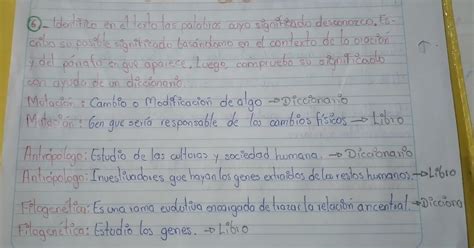 6 - Identifico en el texto las palabras cuyo significado desconozco. Es-
cribo su posible significado basandome en el contexto de la oración
y del párrafo en que aparece. Luego, compruebo su significado
con ayuda de un diccionario.
Mutación: Cambio o Modificación de algo → Diccionario
Mutación: Gen que sería responsable de los cambios físicos → Libro
Antropólogo: Estudio de las culturas y sociedad humana. → Diccionario
Antropólogo: Investivadores que hayan los genes extraidos de los restos humanos → Libro
Filogenética: Es una rama evolutiva encargada de trazar la relación ancentral. → Diccionario
Filogenética: Estudio los genes. → Libro